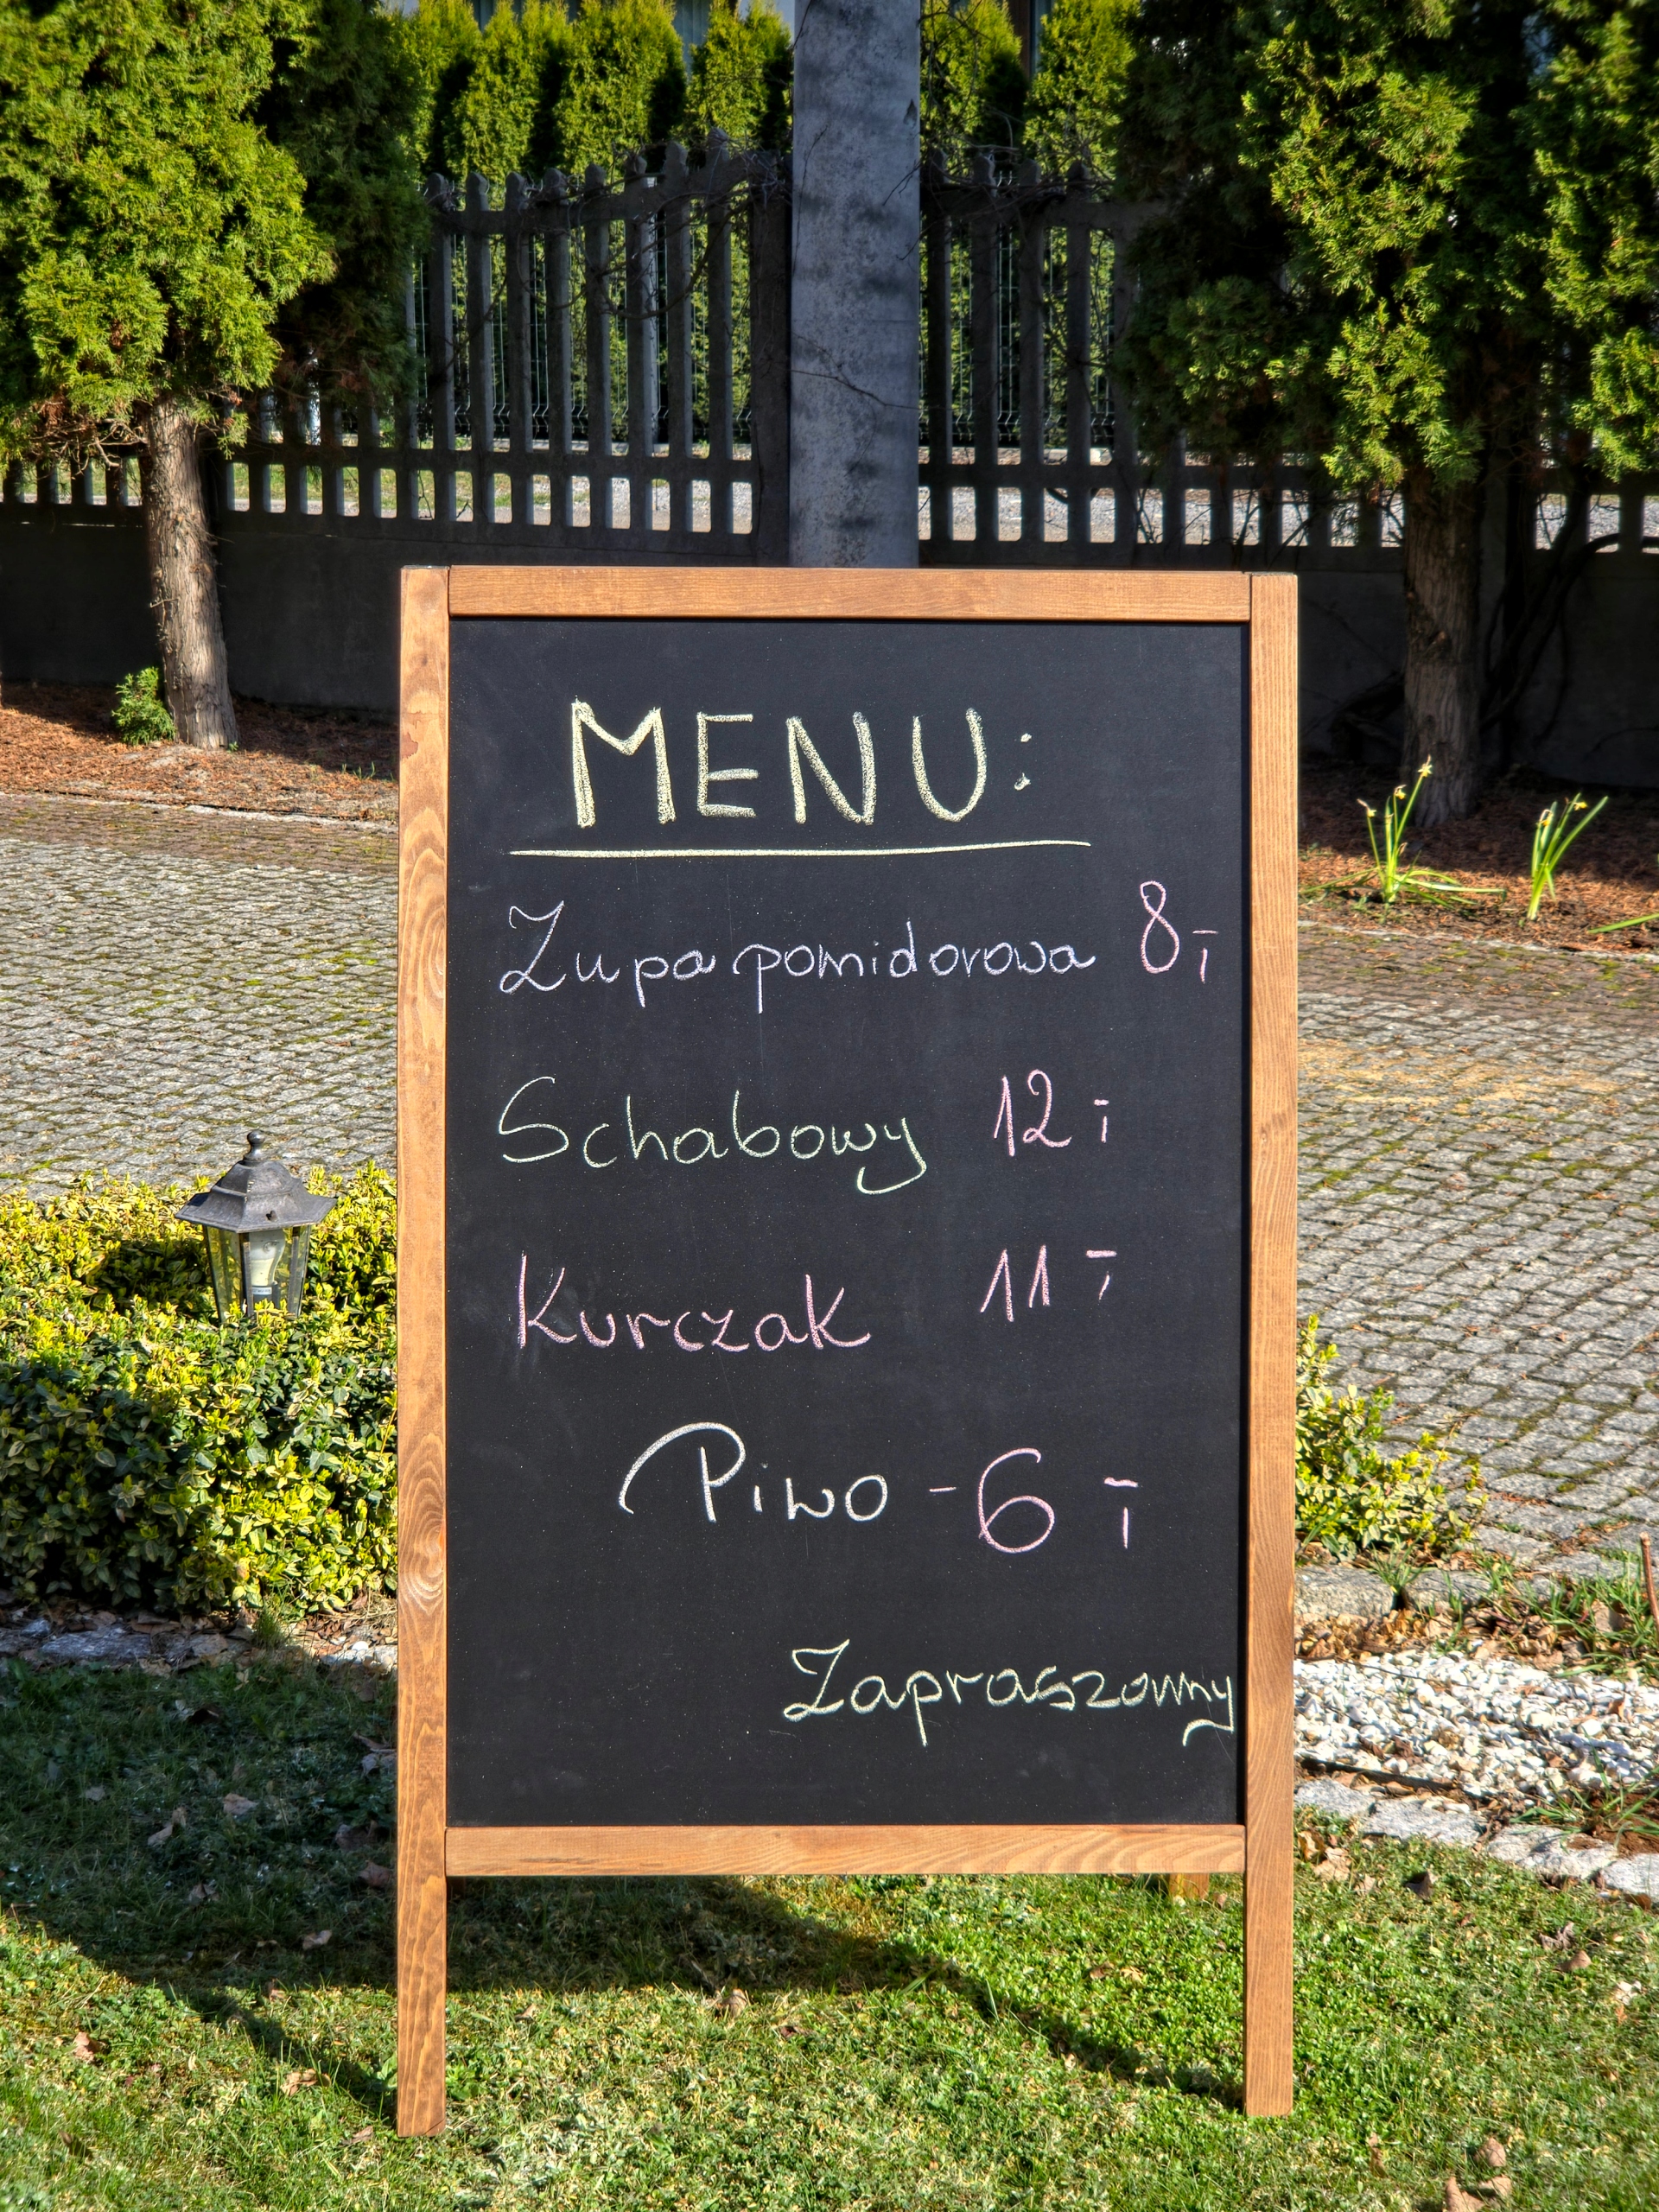 MENU:
Zupa pomidorowa 8,-
Schabowy 12,-
Kurczak 11,-
Piwo - 6,-
Zapraszamy